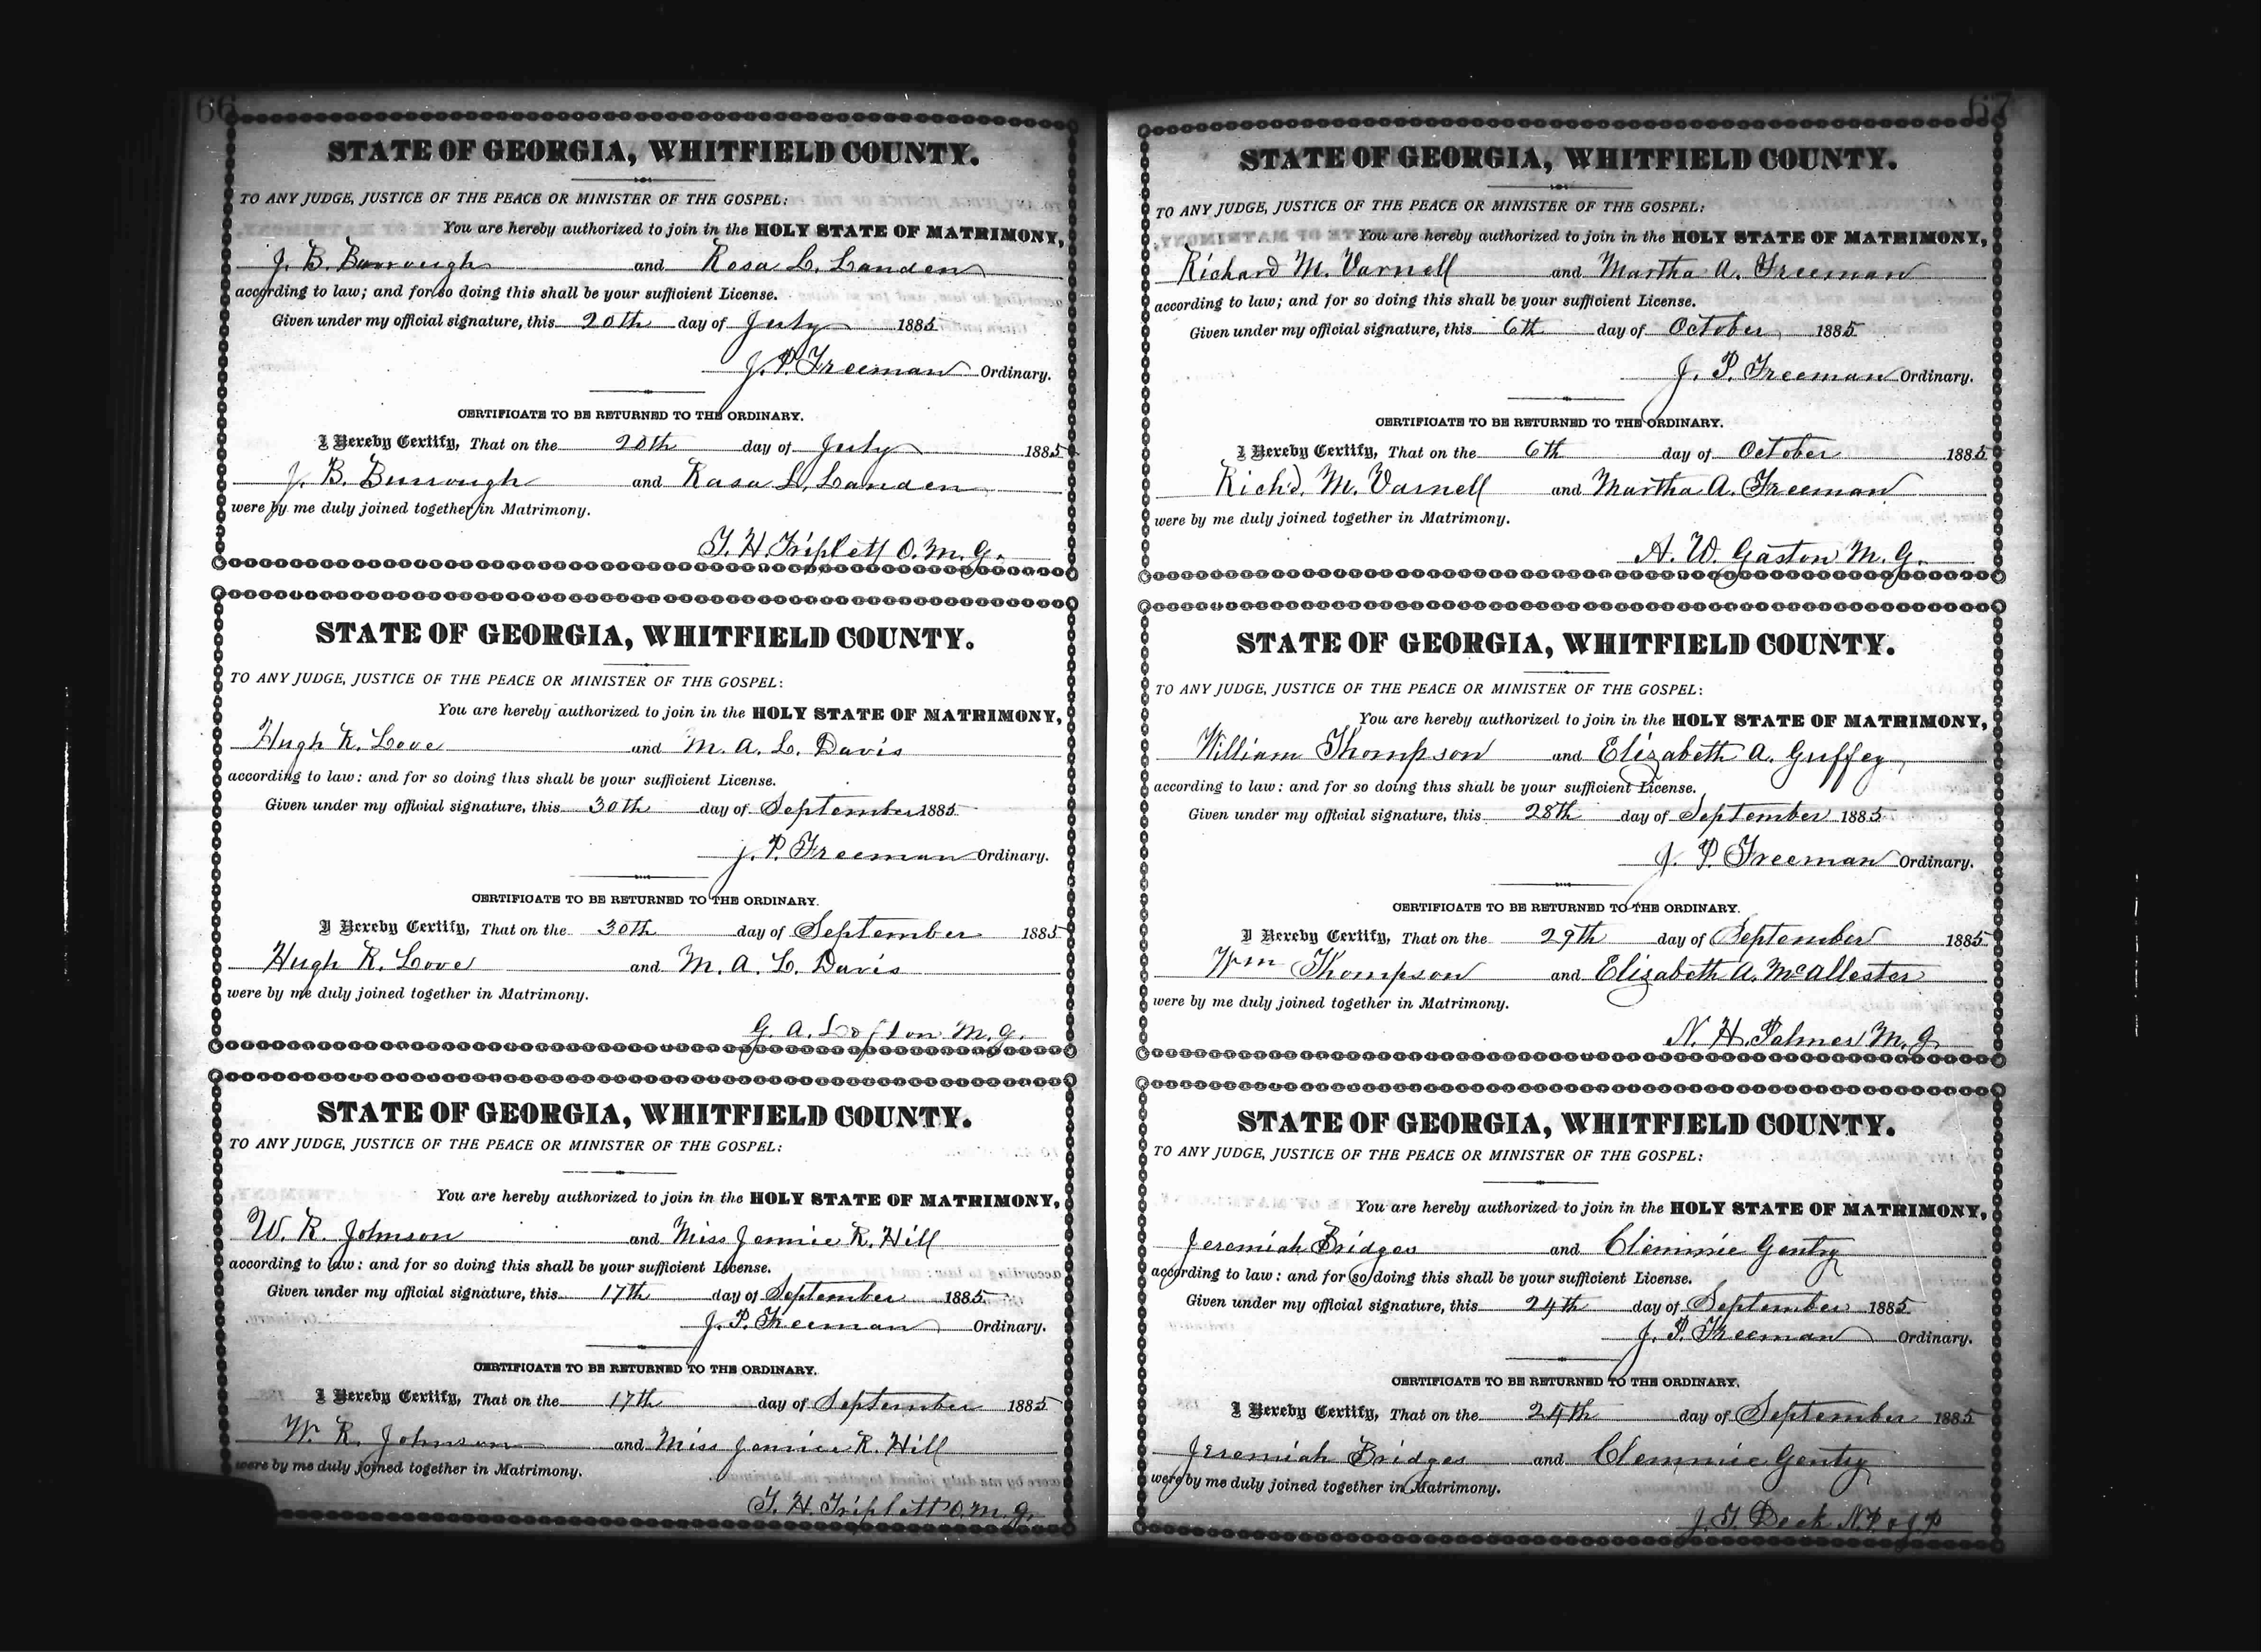 66
STATE OF GEORGIA, WHITFIELD COUNTY.
TO ANY JUDGE, JUSTICE OF THE PEACE OR MINISTER OF THE GOSPEL:
You are hereby authorized to join in the HOLY STATE OF MATRIMONY,
J. B. Burrough and Rosa L. Landen
according to law; and for so doing this shall be your sufficient License.
Given under my official signature, this 20th day of July 1885
J. P. Freeman Ordinary.
CERTIFICATE TO BE RETURNED TO THE ORDINARY.
I Hereby Certify, That on the 20th day of July 1885
J. B. Burrough and Rasa L. Landen
were by me duly joined together in Matrimony.
T. H. Triplett O. M. G.
STATE OF GEORGIA, WHITFIELD COUNTY.
TO ANY JUDGE, JUSTICE OF THE PEACE OR MINISTER OF THE GOSPEL:
You are hereby authorized to join in the HOLY STATE OF MATRIMONY,
Hugh R. Love and M. A. L. Davis
according to law: and for so doing this shall be your sufficient License.
Given under my official signature, this 30th day of September 1885
J. P. Freeman Ordinary.
CERTIFICATE TO BE RETURNED TO THE ORDINARY.
I Hereby Certify, That on the 30th day of September 1885
Hugh R. Love and M. A. L. Davis
were by me duly joined together in Matrimony.
G. A. Lofton M. G.
STATE OF GEORGIA, WHITFIELD COUNTY.
TO ANY JUDGE, JUSTICE OF THE PEACE OR MINISTER OF THE GOSPEL:
You are hereby authorized to join in the HOLY STATE OF MATRIMONY,
W. R. Johnson and Miss Jennie R. Hill
according to law: and for so doing this shall be your sufficient License.
Given under my official signature, this 17th day of September 1885
J. P. Freeman Ordinary.
CERTIFICATE TO BE RETURNED TO THE ORDINARY.
I Hereby Certify, That on the 17th day of September 1885
W. R. Johnson and Miss Jennie R. Hill
were by me duly joined together in Matrimony.
T. H. Triplett O. M. G.
67
STATE OF GEORGIA, WHITFIELD COUNTY.
TO ANY JUDGE, JUSTICE OF THE PEACE OR MINISTER OF THE GOSPEL:
You are hereby authorized to join in the HOLY STATE OF MATRIMONY,
Richard M. Varnell and Martha A. Freeman
according to law; and for so doing this shall be your sufficient License.
Given under my official signature, this 6th day of October 1885
J. P. Freeman Ordinary.
CERTIFICATE TO BE RETURNED TO THE ORDINARY.
I Hereby Certify, That on the 6th day of October 1885
Rich'd. M. Varnell and Martha A. Freeman
were by me duly joined together in Matrimony.
A. W. Gaston M. G.
STATE OF GEORGIA, WHITFIELD COUNTY.
TO ANY JUDGE, JUSTICE OF THE PEACE OR MINISTER OF THE GOSPEL:
You are hereby authorized to join in the HOLY STATE OF MATRIMONY,
William Thompson and Elizabeth A. Guffey
according to law: and for so doing this shall be your sufficient License.
Given under my official signature, this 28th day of September 1885
J. P. Freeman Ordinary.
CERTIFICATE TO BE RETURNED TO THE ORDINARY.
I Hereby Certify, That on the 29th day of September 1885
Wm Thompson and Elizabeth A. McAllester
were by me duly joined together in Matrimony.
N. H. Palmer M. G.
STATE OF GEORGIA, WHITFIELD COUNTY.
TO ANY JUDGE, JUSTICE OF THE PEACE OR MINISTER OF THE GOSPEL:
You are hereby authorized to join in the HOLY STATE OF MATRIMONY,
Jeremiah Bridges and Clemmie Gentry
according to law: and for so doing this shall be your sufficient License.
Given under my official signature, this 24th day of September 1885
J. P. Freeman Ordinary.
CERTIFICATE TO BE RETURNED TO THE ORDINARY.
I Hereby Certify, That on the 24th day of September 1885
Jeremiah Bridges and Clemmie Gentry
were by me duly joined together in Matrimony.
J. T. Deck N. P. & J P